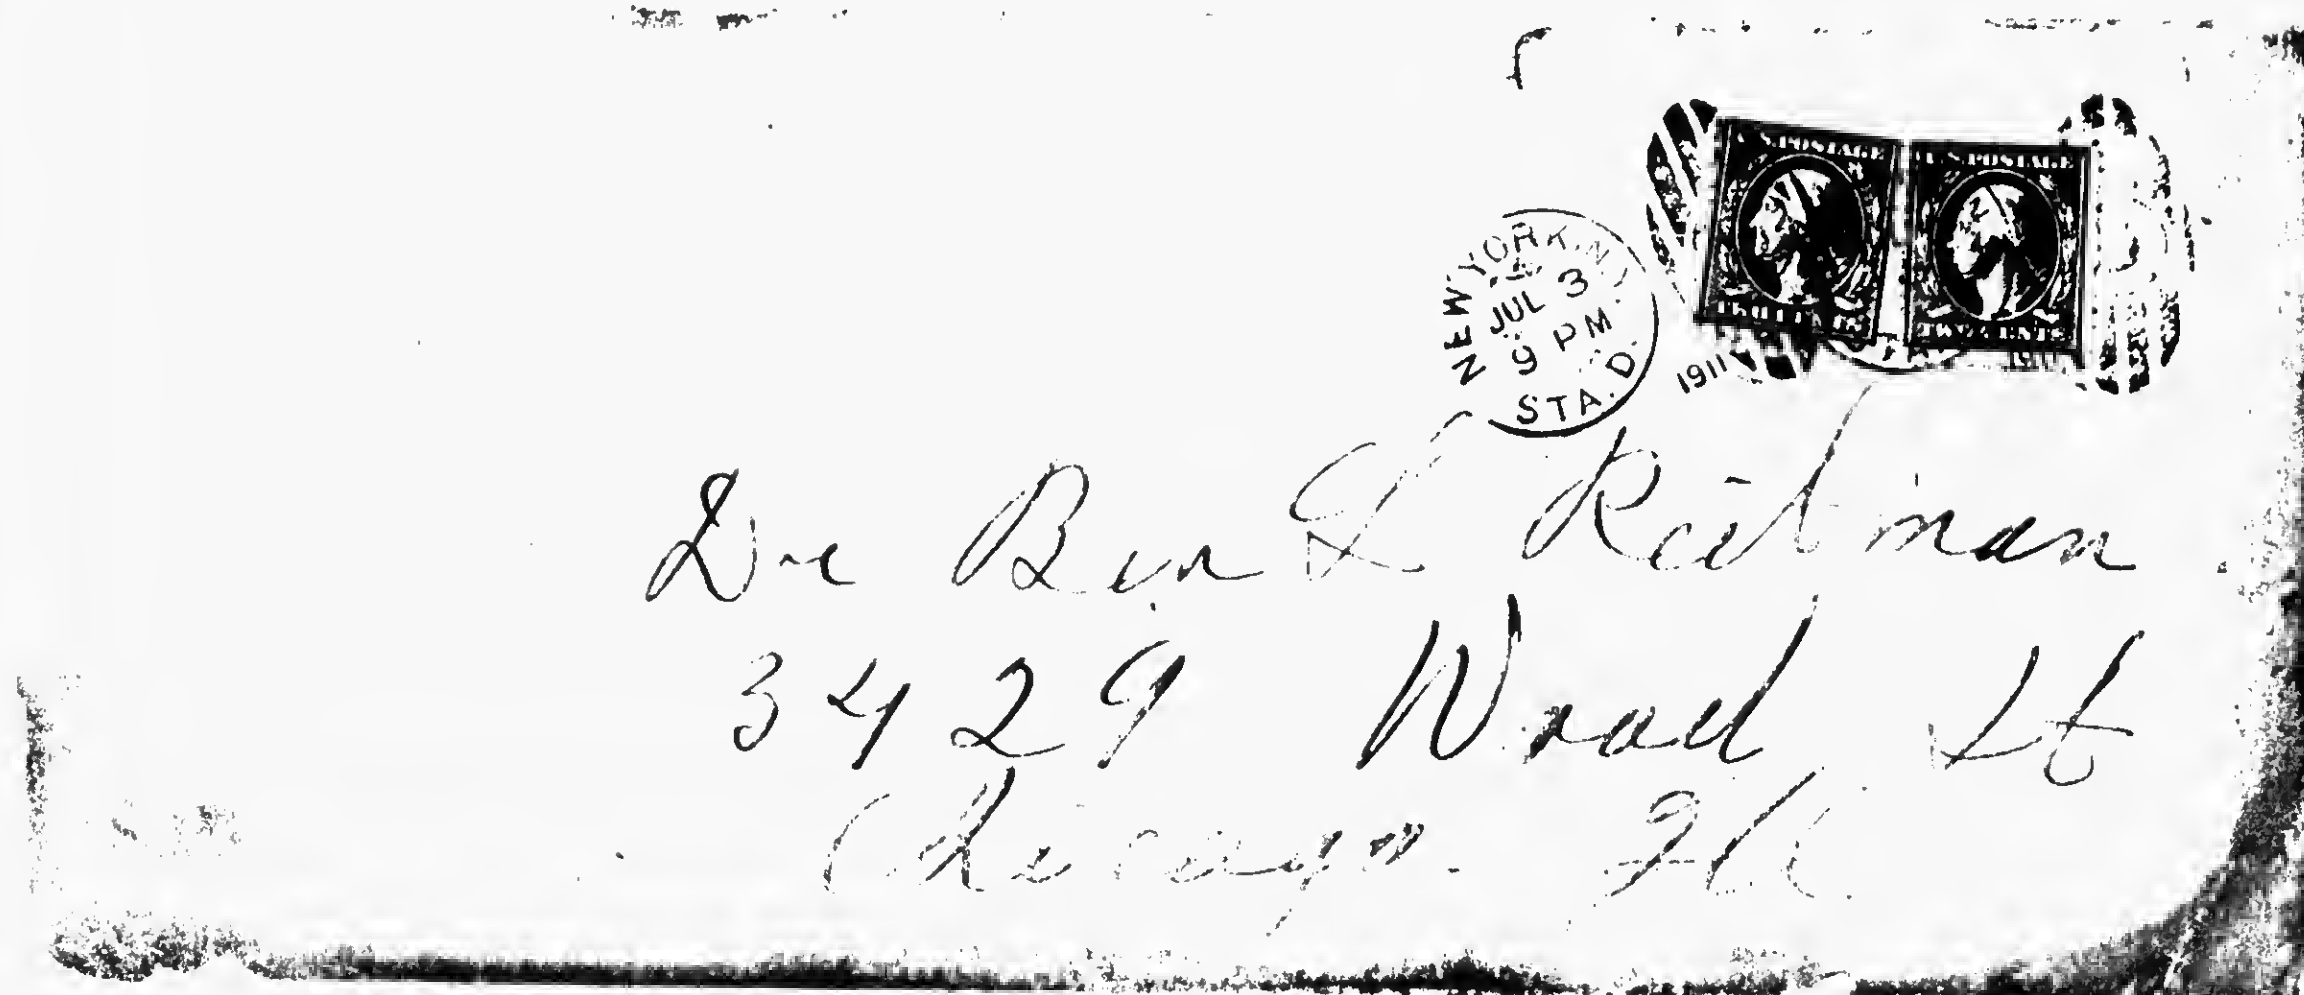 U.S.POSTAGE U.S.POSTAGE
TWO CENTS TWO CENTS
NEW YORK, N.Y.
JUL 3
9 PM
STA. D.
1911
Dr Ben L Reitman
3429 Wood St
Chicago. Ill.